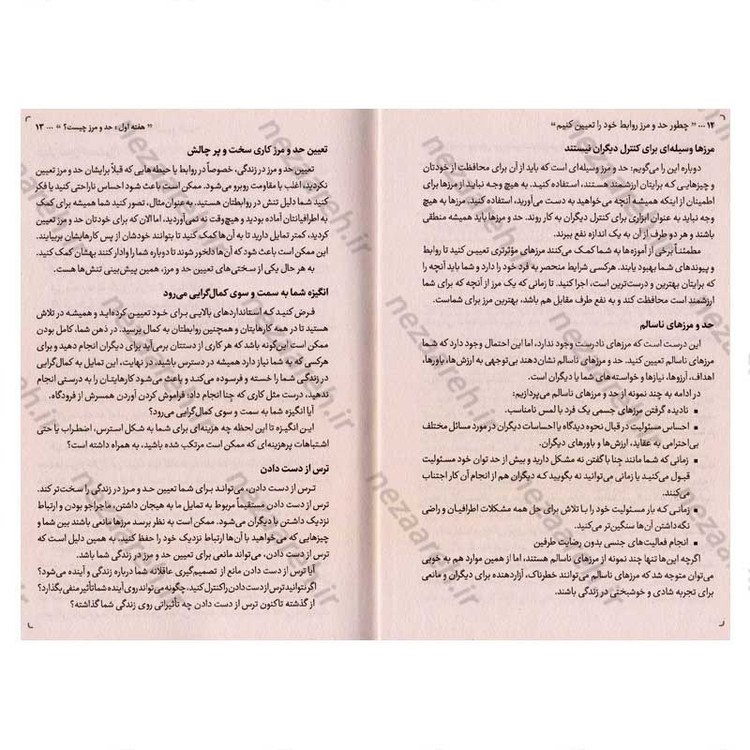 ۱۲ ... « چطور حد و مرز روابط خود را تعیین کنیم »
مرزها وسیله‌ای برای کنترل دیگران نیستند
دوباره این را می‌گویم: حد و مرز وسیله‌ای است که باید از آن برای محافظت از خودتان
و چیزهایی که برایتان ارزشمند هستند، استفاده کنید. به هیچ وجه نباید از مرزها برای
اطمینان از اینکه همیشه آنچه می‌خواهید به دست می‌آورید، استفاده کنید. مرزها به هیچ
وجه نباید به عنوان ابزاری برای کنترل دیگران به کار روند. حد و مرزها باید همیشه منطقی
باشند و هر دو طرف از آن به یک اندازه نفع ببرند.
مطمئناً برخی از آموزه‌ها به شما کمک می‌کنند مرزهای مؤثرتری تعیین کنید تا روابط
و پیوندهای شما بهبود یابند. هرکسی شرایط منحصر به فرد خود را دارد و شما باید آنچه را
که برایتان بهترین و درست‌ترین است، اجرا کنید. تا زمانی که یک مرز از آنچه که برای شما
ارزشمند است محافظت کند و به نفع طرف مقابل هم باشد، بهترین مرز برای شماست.
حد و مرزهای ناسالم
این درست است که مرزهای نادرست وجود ندارد، اما این احتمال وجود دارد که شما
مرزهای ناسالم تعیین کنید. حد و مرزهای ناسالم نشان‌دهنده بی‌توجهی به ارزش‌ها، باورها،
اهداف، آرزوها، نیازها و خواسته‌های شما یا دیگران است.
در ادامه به چند نمونه از حد و مرزهای ناسالم می‌پردازیم:
▪ نادیده گرفتن مرزهای جسمی یک فرد با لمس نامناسب.
▪ احساس مسئولیت در قبال نحوه دیدگاه یا احساسات دیگران در مورد مسائل مختلف
بی‌احترامی به عقاید، ارزش‌ها و باورهای دیگران.
▪ زمانی که شما مانند جِنا با گفتن نه مشکل دارید و بیش از حد توان خود مسئولیت
قبول می‌کنید یا زمانی می‌توانید نه بگویید که دیگران هم از انجام آن کار اجتناب
می‌کنند.
▪ زمانی که بار مسئولیت خود را با تلاش برای حل همه مشکلات اطرافیان و راضی
نگه‌داشتن آن‌ها سنگین‌تر می‌کنید.
▪ انجام فعالیت‌های جنسی بدون رضایت طرفین
اگرچه این‌ها تنها چند نمونه از مرزهای ناسالم هستند، اما از همین موارد هم به خوبی
می‌توان متوجه شد که مرزهای ناسالم می‌توانند خطرناک، آزاردهنده برای دیگران و مانعی
برای تجربه شادی و خوشبختی در زندگی باشند.
« هفته اول: حد و مرز چیست؟ » ... ۱۳
تعیین حد و مرز کاری سخت و پر چالش
اغلب تعیین حد و مرز در زندگی، خصوصاً در روابط یا حیطه‌هایی که قبلاً برایشان حد و مرز تعیین
نکردید، اغلب با مقاومت روبرو می‌شود. ممکن است باعث شود احساس ناراحتی کنید یا فکر
کنید شما دلیل تنش در روابطتان هستید. به عنوان مثال، تصور کنید شما همیشه برای کمک
به اطرافیانتان آماده بودید و هیچ‌وقت نه نمی‌آوردید، اما الان که برای خودتان حد و مرز تعیین
کردید، کمتر تمایل دارید تا به آن‌ها کمک کنید تا بتوانند خودشان از پس کارهایشان بربیایند.
این ممکن است باعث شود که آن‌ها دلخور شوند تا دوباره شما را وادار کنند بهشان کمک کنید.
به هر حال یکی از سختی‌های تعیین حد و مرز، همین پیش‌بینی تنش‌ها هست.
انگیزه شما به سمت و سوی کمال‌گرایی می‌رود
فرض کنید که استانداردهای بالایی برای خود تعیین کرده‌اید و همیشه در تلاش
هستید تا در همه کارهایتان و همچنین روابطتان به کمال برسید. در ذهن شما، کامل بودن
ممکن است این‌گونه باشد که هر کاری از دستتان برمی‌آید برای دیگران انجام دهید و برای
هرکسی که به شما نیاز دارد همیشه در دسترس باشید. در نهایت، این تمایل به کمال‌گرایی
در زندگی شما را خسته و فرسوده می‌کند و باعث می‌شود کارهایتان را به درستی انجام
ندهید، درست مثل کاری که جِنا انجام داد: فراموش کردن آوردن همسرش از فرودگاه.
آیا انگیزه شما به سمت و سوی کمال‌گرایی می‌رود؟
این انگیزه تا این لحظه چه هزینه‌ای برای شما به شکل استرس، اضطراب یا حتی
اشتباهات پرهزینه‌ای که ممکن است مرتکب شده باشید، به همراه داشته است؟
ترس از دست دادن
ترس از دست دادن، می‌تواند برای شما تعیین حد و مرز در زندگی را سخت‌تر کند.
ترس از دست دادن مستقیماً مربوط به تمایل ما به هیجان داشتن، ماجراجو بودن و ارتباط
نزدیک داشتن با دیگران می‌شود. ممکن است به نظر برسد مرزها مانعی باشند بین شما و
چیزهایی که می‌خواهید با آن‌ها ارتباط نزدیک خود را حفظ کنید، به همین دلیل است که
ترس از دست دادن، می‌تواند مانعی برای تعیین حد و مرز در زندگی شما باشد.
آیا ترس از دست دادن مانع از تصمیم‌گیری عاقلانه شما درباره زندگی و آینده می‌شود؟
اگر نتوانید ترس از دست دادن را کنترل کنید، چگونه می‌تواند روی آینده شما تأثیر منفی بگذارد؟
از گذشته تاکنون ترس از دست دادن چه تأثیراتی روی زندگی شما گذاشته؟
nezaameh.ir